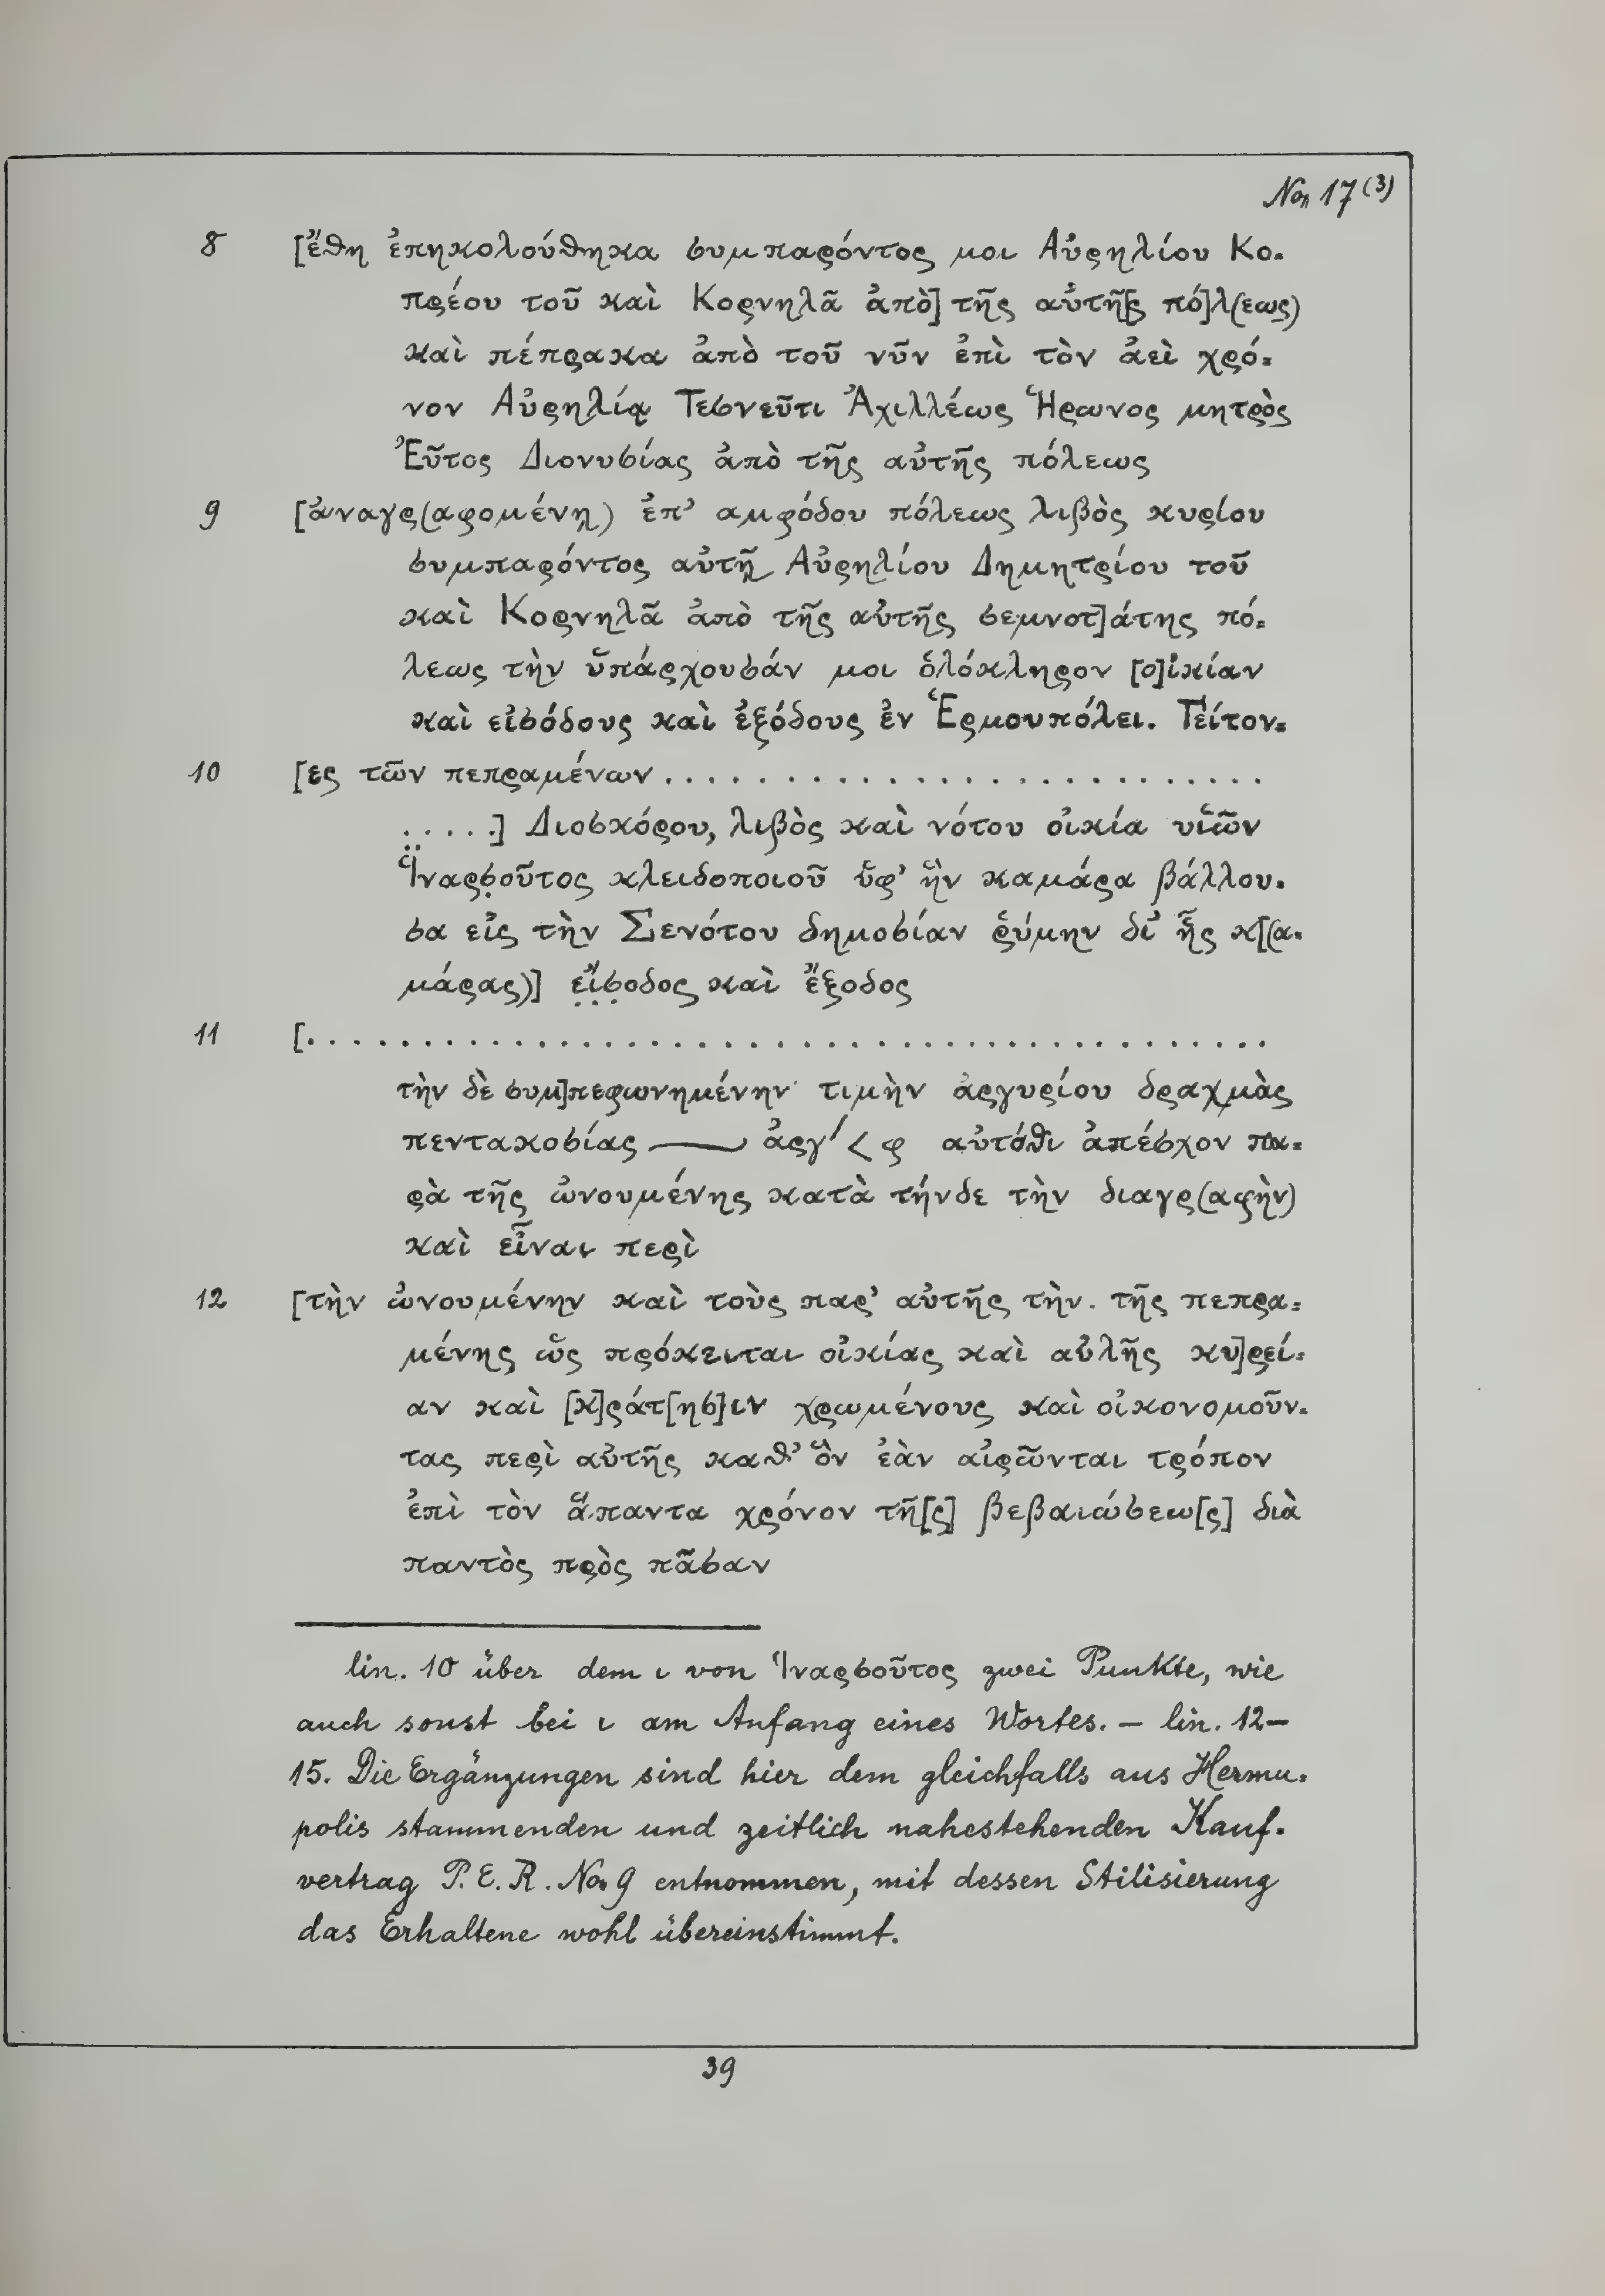 No 17 (3)
8 [ἔθη ἐπηκολούθηκα συμπαρόντος μοι Αὐρηλίου Κο-
πρέου τοῦ καὶ Κορνηλᾶ ἀπὸ] τῆς αὐτῆ[ς πό]λ(εως)
καὶ πέπρακα ἀπὸ τοῦ νῦν ἐπὶ τὸν ἀεὶ χρό-
νον Αὐρηλίᾳ Τεσνεῦτι Ἀχιλλέως Ἥρωνος μητρὸς
Ἑῦτος Διονυσίας ἀπὸ τῆς αὐτῆς πόλεως
9 [ἀναγρ(αφομένῃ) ἐπ’ αμφόδου πόλεως λιβὸς κυρίου
συμπαρόντος αὐτῇ Αὐρηλίου Δημητρίου τοῦ
καὶ Κορνηλᾶ ἀπὸ τῆς αὐτῆς σεμνοτ]άτης πό-
λεως τὴν ὑπάρχουσάν μοι ὁλόκληρον [ο]ἰκίαν
καὶ εἰσόδους καὶ ἐξόδους ἐν Ἑρμουπόλει. Γείτον-
10 [ες τῶν πεπραμένων . . . . . . . . . . . . . . . . . . . . . . . .
. . . . .] Διοσκόρου, λιβὸς καὶ νότου οἰκία υἱῶν
Ἱναρσ̣οῦτος κλειδοποιοῦ ὑφ’ ἣν καμάρα βάλλου-
σα εἰς τὴν Σενότου δημοσίαν ῥύμην δι’ ἧς κ[(α-
μάρας)] ε̣ἴ̣σ̣οδος καὶ ἔξοδος
11 [. . . . . . . . . . . . . . . . . . . . . . . . . . . . . . . . . . . . . . . .
τὴν δὲ συμ]πεφωνημένην τιμὴν ἀργυρίου δραχμὰς
πεντακοσίας —— ἀργ′ < φ αὐτόθι ἀπέσχον πα-
ρὰ τῆς ὠνουμένης κατὰ τήνδε τὴν διαγρ(αφὴν)
καὶ εἶναι περὶ
12 [τὴν ὠνουμένην καὶ τοὺς παρ’ αὐτῆς τὴν τῆς πεπρα-
μένης ὡς πρόκειται οἰκίας καὶ αὐλῆς κυ]ρεί-
αν καὶ [κ]ράτ[ησ]ιν χρωμένους καὶ οἰκονομοῦν-
τας περὶ αὐτῆς καθ’ ὃν ἐὰν αἱρῶνται τρόπον
ἐπὶ τὸν ἅπαντα χρόνον τῆ[ς] βεβαιώσεω[ς] διὰ
παντὸς πρὸς πᾶσαν
lin. 10 über dem ι von Ἱναρσοῦτος zwei Punkte, wie
auch sonst bei ι am Anfang eines Wortes. – lin. 12–
15. Die Ergänzungen sind hier dem gleichfalls aus Hermu-
polis stammenden und zeitlich nahestehenden Kauf-
vertrag P. E. R. No 9 entnommen, mit dessen Stilisierung
das Erhaltene wohl übereinstimmt.
39